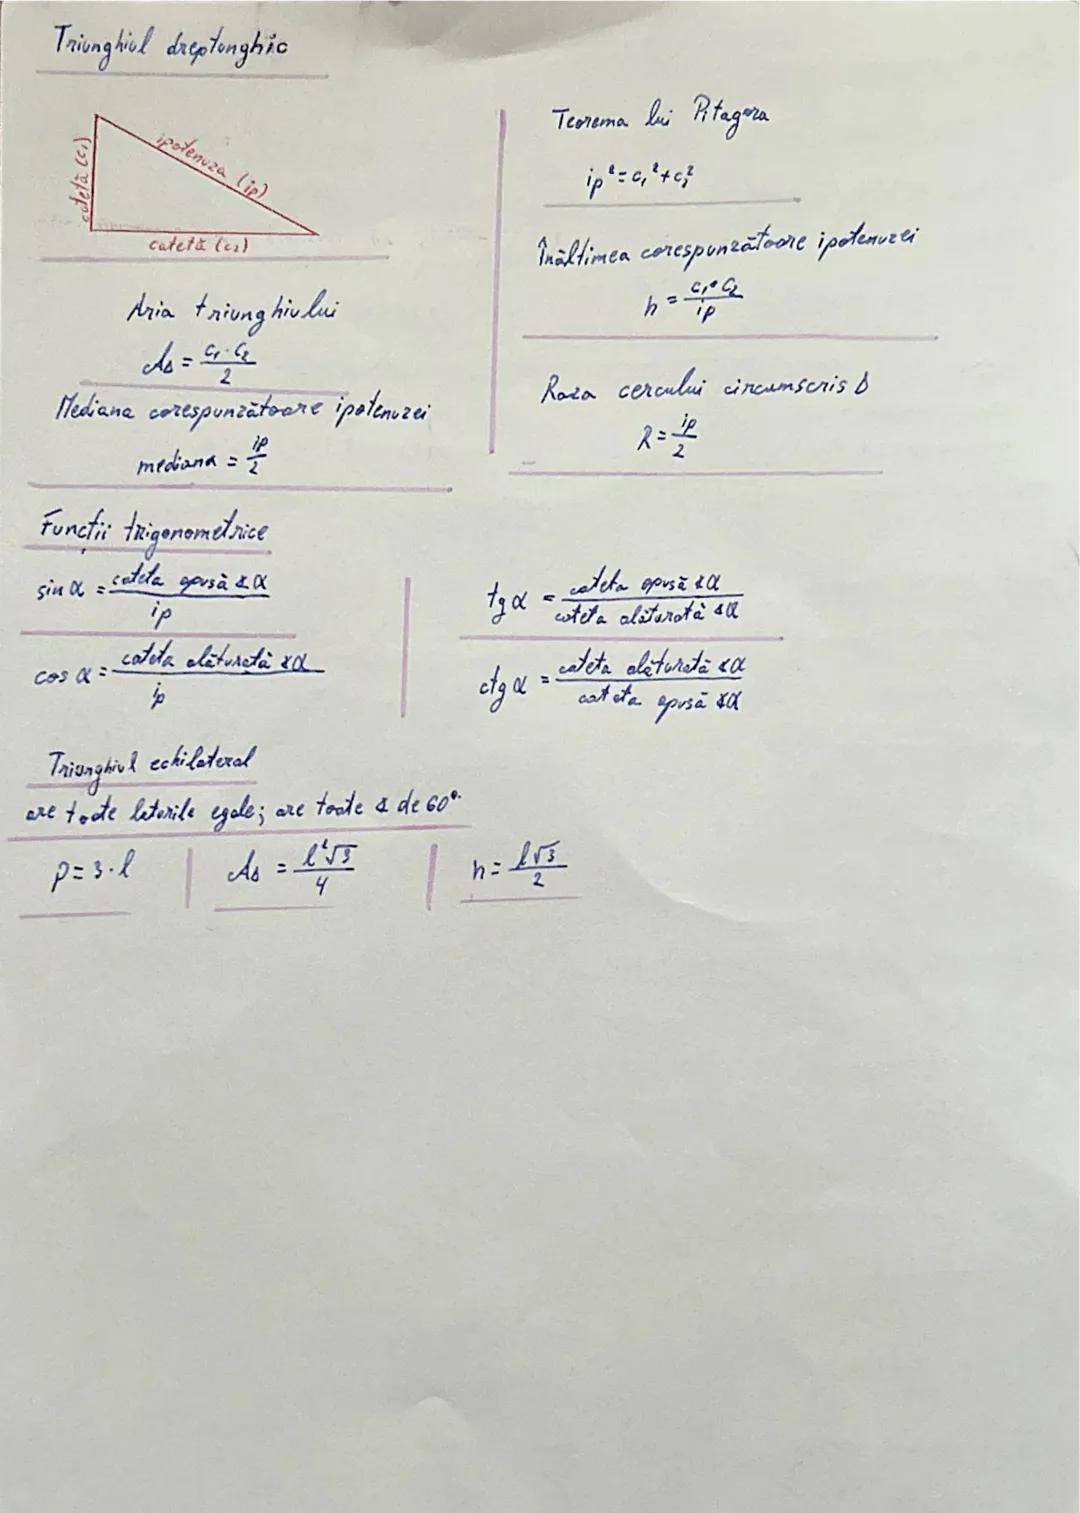 Triunghiul dreptunghic
catetă (c₁)
ipotenuza (ip)
catetă (c₂)
Aria triunghiului
A△ = c₁·c₂/2
Mediana corespunzătoare ipotenuzei
mediana = ip/2
Teorema lui Pitagora
ip² = c₁² + c₂²
Înălțimea corespunzătoare ipotenuzei
h = c₁•c₂/ip
Raza cercului circumscris △
R = ip/2
Funcții trigonometrice
sin α = cateta opusă ∢α/ip
cos α = cateta alăturată ∢α/ip
tg α = cateta opusă ∢α/cateta alăturată ∢α
ctg α = cateta alăturată ∢α/cateta opusă ∢α
Triunghiul echilateral
are toate laturile egale; are toate ∢ de 60°.
P = 3·l
A△ = l²√3/4
h = l√3/2